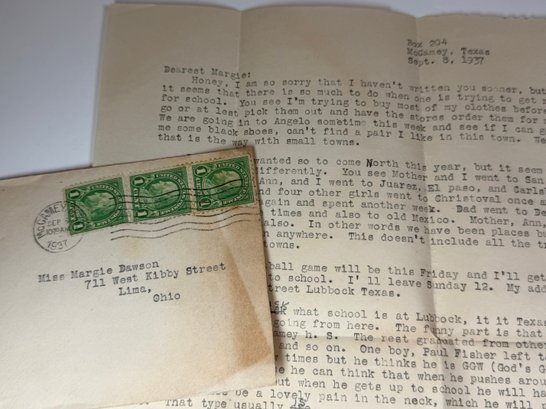 Box 204
McCamey, Texas
Sept. 8, 1937
Dearest Margie:
Honey, I am so sorry that I haven't written you sooner, but
it seems that there is so much to do when one is trying to get
for school. You see I'm trying to buy most of my clothes before
go or at least pick them out and have the stores order them for
We are going in to Angelo sometime this week and see if I can g
me some black shoes, can't find a pair I like in this town. We
that is the way with small towns.
wanted so to come North this year, but it seem
differently. You see Mother and I went to San
Ann, and I went to Juarez, El paso, and Carls
and four other girls went to Christoval once a
gain and spent another week. Dad went to De
times and also to old Mexico. Mother, Ann,
also. In other words we have been places bu
n anywhere. This doesn't include all the tr
towns.
ball game will be this Friday and I'll get
to school. I'll leave Sunday 12. My add
treet Lubbock Texas.
sk
what school is at Lubbock, it it Texas
going from here. The funny part is that
amey h. S. The rest graduated from othe
and so on. One boy, Paul Fisher left to
y times but he thinks he is GGW (God's G
e he can think that when he pushes aroun
but when he gets up to school he will ha
be a lovely pain in the neck, which he will
That type usually is
McCAMEY
SEP
10 AM
1937
1 1
1 1
1 1
Miss Margie Dawson
711 West Kibby Street
Lima,
Ohio